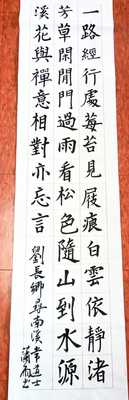 一路經行處莓苔見屐痕白雲依靜渚
芳草閉閑門過雨看松色隨山到水源
溪花與禪意相對亦忘言
劉長卿尋南溪常道士